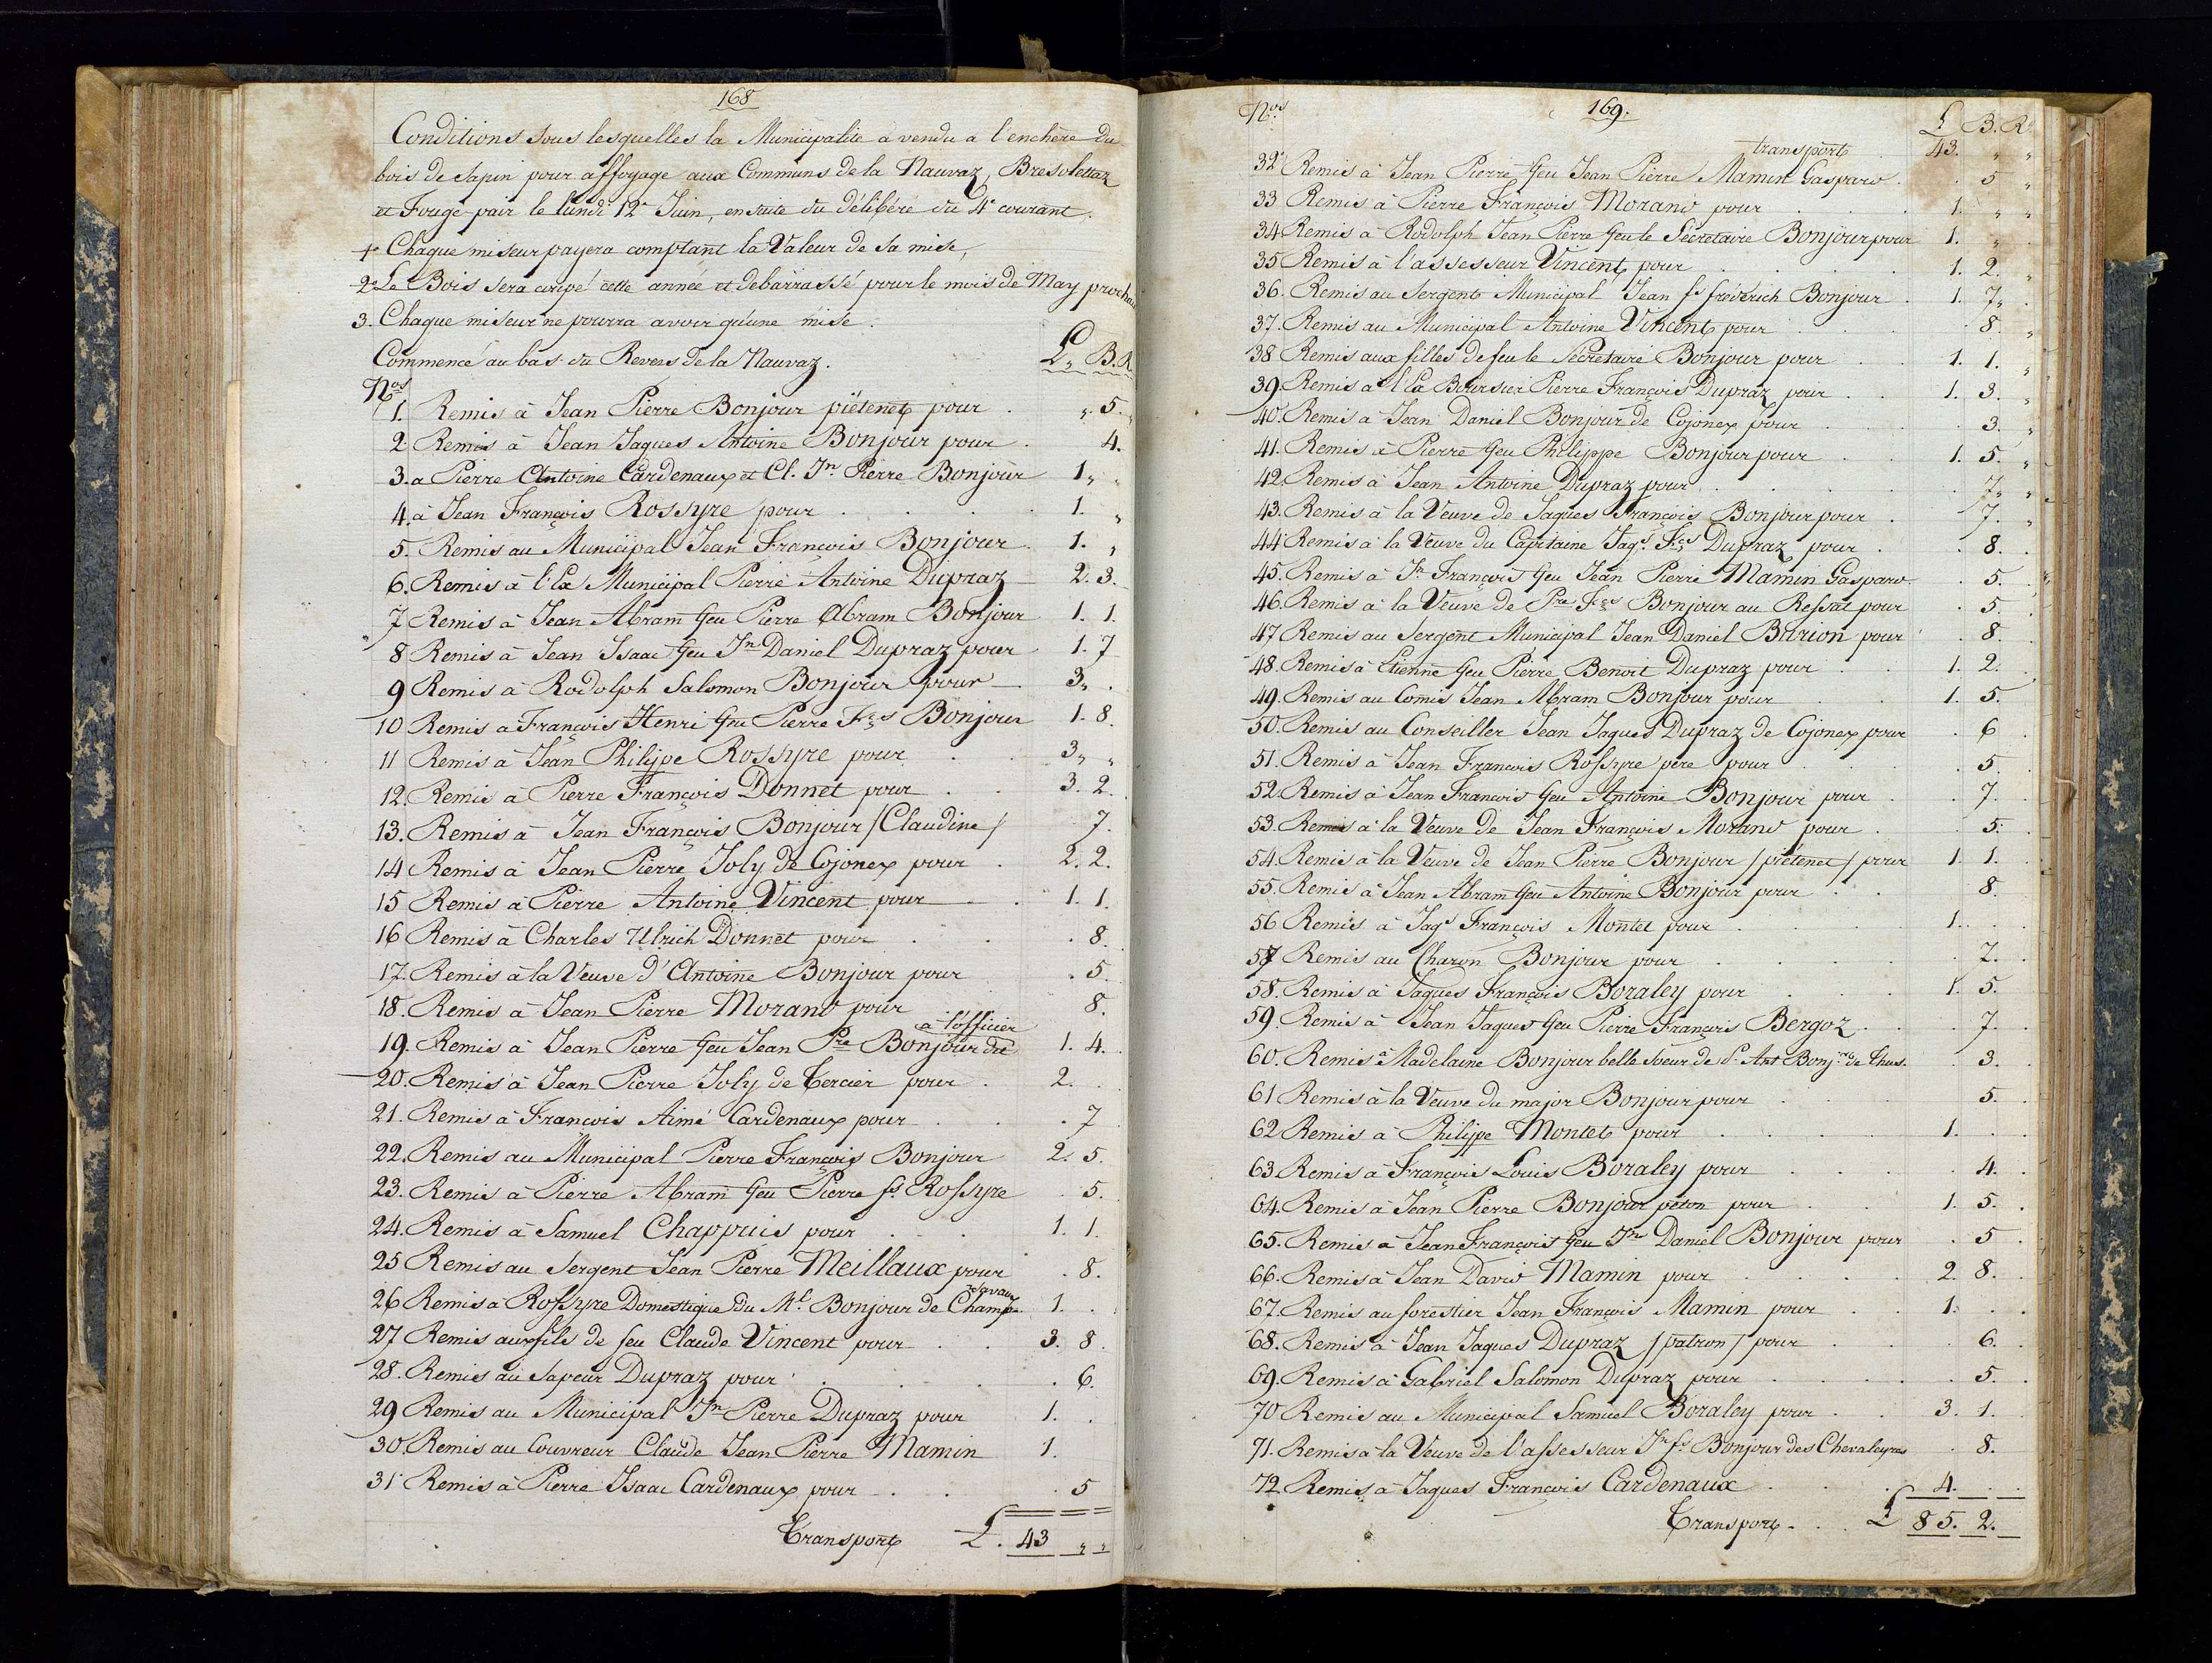 168
Conditions sous lesquelles la Municipalité a vendu a l'enchère du
bois de sapin pour affoyage aux Communs de la Nauvaz, Bresolettaz
et Fouge-pair le Lundi 12e Juin, ensuite du délibéré du 4e courant.
1. Chaque miseur payera comptant la Valeur de sa mise,
2. Le Bois sera coupé cette année et debarrassé pour le mois de May prochain
3. Chaque miseur ne pourra avoir qu'une mise.
Commencé au bas du Revers de la Nauvaz. L. B. R.
Nos
1. Remis à Jean Pierre Bonjour piétenet pour . „ 5. „
2. Remis à Jean Jaques Antoine Bonjour pour . 4.
3. a Pierre Antoine Cardenaux et Cl. Jn Pierre Bonjour 1 „ „
4. à Jean François Rossyre pour . . . . 1. „
5. Remis au Municipal Jean François Bonjour . 1. „
6. Remis à l'Ex Municipal Pierre Antoine Dupraz 2. 3.
7 Remis à Jean Abram feu Pierre Abram Bonjour 1. 1.
8 Remis à Jean Isaac feu Jn Daniel Dupraz pour 1. 7
9 Remis à Rodolph Salomon Bonjour pour 3 „ .
10 Remis a François Henri feu Pierre Fçs Bonjour 1. 8.
11 Remis à Jean Philippe Rossyre pour . . 3 „ „
12. Remis à Pierre François Donnet pour . . 3. 2.
13. Remis à Jean François Bonjour /Claudine/ 7.
14 Remis à Jean Pierre Joly de Cojonex pour . 2. 2.
15 Remis à Pierre Antoine Vincent pour . . 1. 1.
16 Remis à Charles Ulrich Donnet pour . . . . 8.
17. Remis à la Veuve d'Antoine Bonjour pour . 5.
18. Remis à Jean Pierre Morand pour 8.
19. Remis à Jean Pierre feu Jean Pre Bonjour dit à l'officier 1. 4.
20. Remis à Jean Pierre Joly de Tercier pour . 2. .
21. Remis à François Aimé Cardenaux pour . . . 7
22. Remis au Municipal Pierre François Bonjour 2. 5.
23. Remis à Pierre Abram feu Pierre fs Rossyre . 5.
24. Remis à Samuel Chappuis pour . . . 1. 1.
25 Remis au Sergent Jean Pierre Meillaux pour . 8.
26 Remis à Rossyre Domestique du Ml. Bonjour de Champsavaux 1. .
27 Remis aux fils de feu Claude Vincent pour . . 3. 8.
28. Remis au Sapeur Dupraz pour . . . . 6.
29 Remis au Municipal Jn Pierre Dupraz pour 1. .
30. Remis au Couvreur Claude Jean Pierre Mamin 1.
31 Remis à Pierre Isaac Cardenaux pour . . . 5
Transport L. 43 „ „
Nos 169. L B. R.
transport 43. „ „
32 Remis à Jean Pierre feu Jean Pierre Mamin Gaspard . . 5 „
33 Remis à Pierre François Morand pour . . . 1. „ „
34 Remis à Rodolph Jean Pierre feu le Secretaire Bonjour pour 1. „ .
35 Remis à l'assesseur Vincent pour . . . . 1. 2. „
36. Remis au Sergent Municipal Jean fs fréderich Bonjour . 1. 7 „ .
37. Remis au Municipal Antoine Vincent pour . . . . 8. „
38 Remis aux filles de feu le Secretaire Bonjour pour . . 1. 1. „
39. Remis à l'Ex Boursier Pierre François Dupraz pour . . 1. 3. „
40. Remis à Jean Daniel Bonjour de Cojonex pour . . . . 3. „
41. Remis à Pierre feu Philippe Bonjour pour . . 1. 5. „
42. Remis à Jean Antoine Dupraz pour . . . . . 7 „ „
43. Remis à la Veuve de Jaques François Bonjour pour . . 7. „
44 Remis à la Veuve du Capitaine Jaqs Fçs Dupraz pour . . 8. .
45. Remis à Jn François feu Jean Pierre Mamin Gaspard . 5. „
46. Remis à la Veuve de Pre Fçs Bonjour au Ressat pour . 5. .
47 Remis au Sergent Municipal Jean Daniel Burion pour . 8. .
48. Remis à Etienne feu Pierre Benoit Dupraz pour . . 1. 2. .
49. Remis au Comis Jean Abram Bonjour pour . . 1. 5.
50. Remis au Conseiller Jean Jaques Dupraz de Cojonex pour . 6 .
51. Remis à Jean François Rossyre père pour . . . . 5 .
52. Remis à Jean François feu Antoine Bonjour pour . . 7. .
53. Remis à la Veuve de Jean François Morand pour . . 5. .
54. Remis à la Veuve de Jean Pierre Bonjour /piétenet/ pour 1. 1. .
55. Remis à Jean Abram feu Antoine Bonjour pour . . 8. .
56 Remis à Jaqs François Montet pour . . . . 1. . .
57 Remis au Charon Bonjour pour . . . . . 7. .
58. Remis à Jaques François Boraley pour . . . 1. 5. .
59. Remis à Jean Jaques feu Pierre François Bergoz . . . 7. .
60. Remis à Madelaine Bonjour belle Soeur de S. Ant Bonj.re de Thus. . 3. .
61 Remis à la Veuve du major Bonjour pour . . . 5. .
62 Remis à Philippe Montet pour . . . . 1. . .
63 Remis à François Louis Boraley pour . . . . 4. .
64. Remis à Jean Pierre Bonjour péton pour . . 1. 5. .
65. Remis à Jean François feu Jn Daniel Bonjour pour . 5 .
66. Remis à Jean David Mamin pour . . . . 2. 8. .
67. Remis au forestier Jean François Mamin pour . . 1. . .
68. Remis à Jean Jaques Dupraz /patron/ pour . . . 6. .
69. Remis à Gabriel Salomon Dupraz pour . . . . . 5. .
70 Remis au Municipal Samuel Boraley pour . . 3. 1. .
71. Remis à la Veuve de l'assesseur Jn fs Bonjour des Chevaleyres . 8. .
72 Remis à Jaques François Cardenaux . . . . 4. . .
Transport . . . L 85. 2.